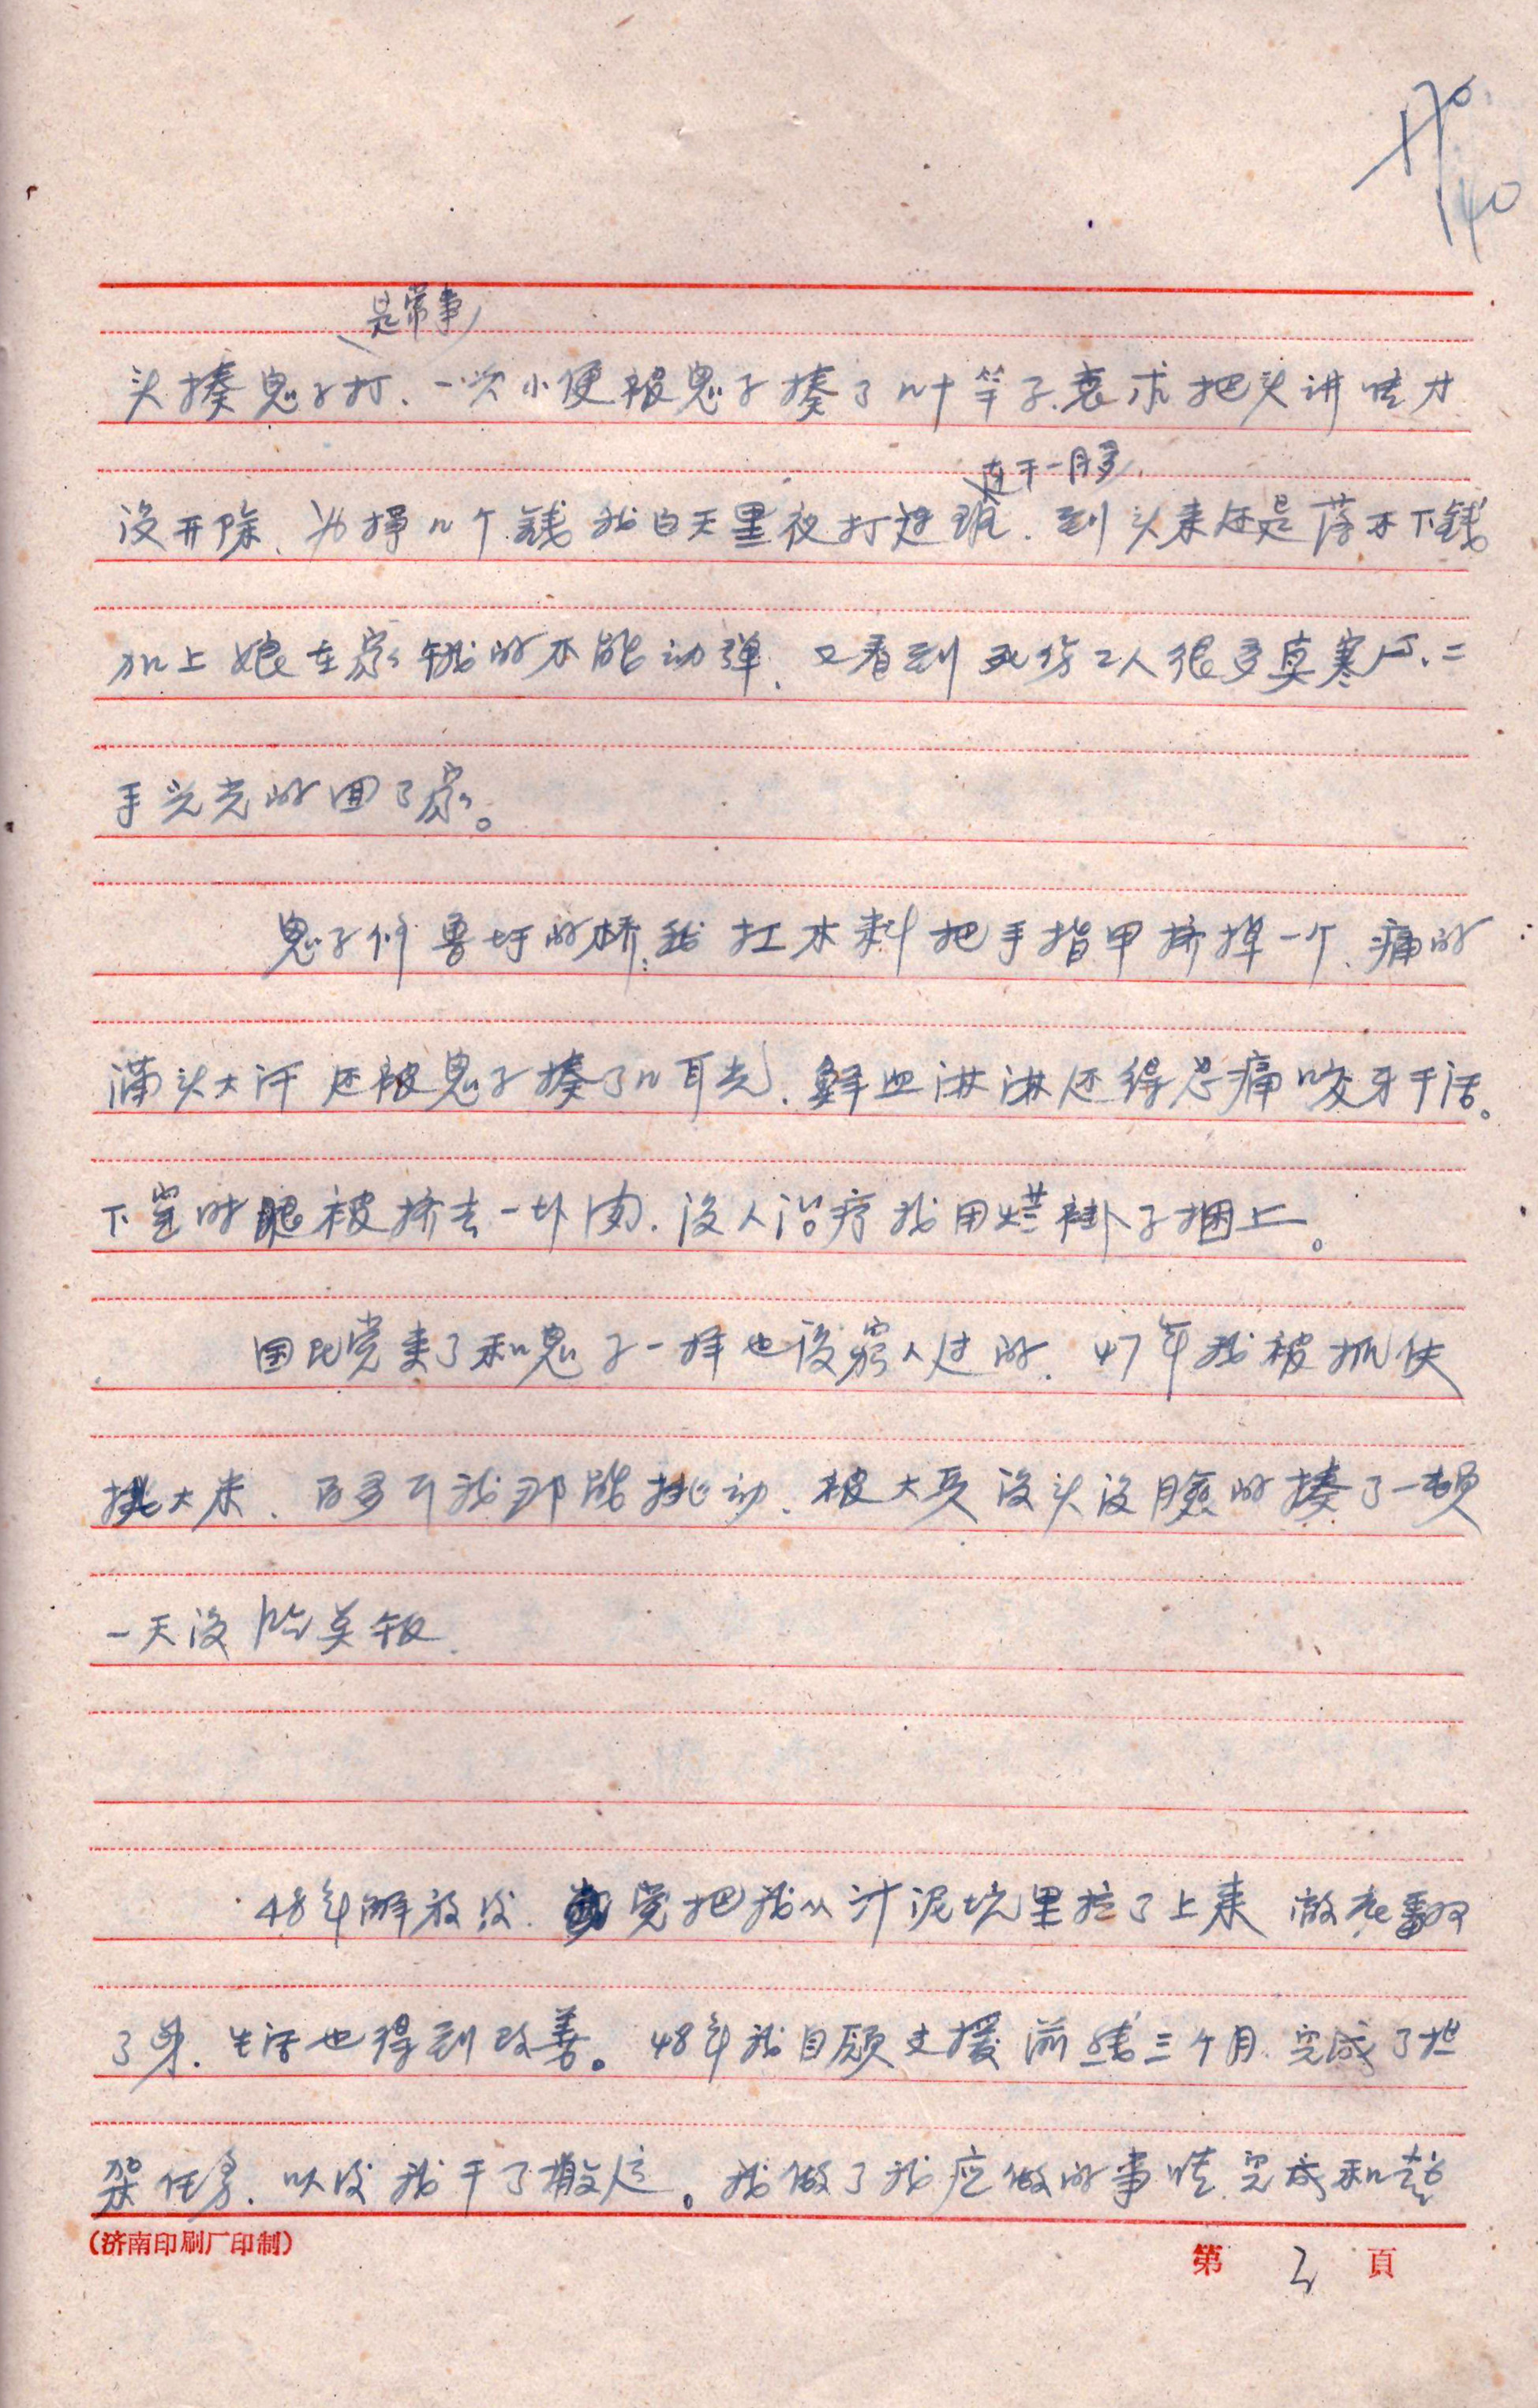 140
是常事
头揍鬼子打、一次小便被鬼子揍了几十竿子、哀求把头讲情才
连干一月多
没开除、为挣几个钱我白天黑夜打连班、到头来还是落不下钱
加上娘在家饿的不能动弹、又看到死伤工人很多真寒心、二
手光光的回了家。
鬼子修鲁圩的桥、我扛木料把手指甲挤掉一个、痛的
满头大汗还被鬼子揍了几耳光、鲜血淋淋还得忍痛咬牙干活。
下窑时腿被挤去一块肉、没人治疗我用烂褂子捆上。
国民党来了和鬼子一样也没穷人过的、47年我被抓伕
挑大米、百多斤我那能挑动、被大兵没头没脸的揍了一顿
一天没吃英饭
48年解放后、党把我从汁泥坑里拉了上来 做在翻
了身、生活也得到改善。48年我自愿支援前线三个月、完成了担
架任务、以后我干了搬运。我做了我应做的事情、完成和
(济南印刷厂印制)
第 2 頁